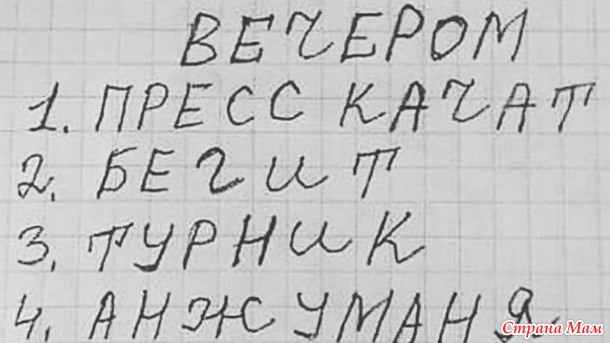 ВЕЧЕРОМ
1. ПРЕСС КАЧАТ
2. БЕГИТ
3. ТУРНИК
4. АНЖУМАНЯ
Страна Мам